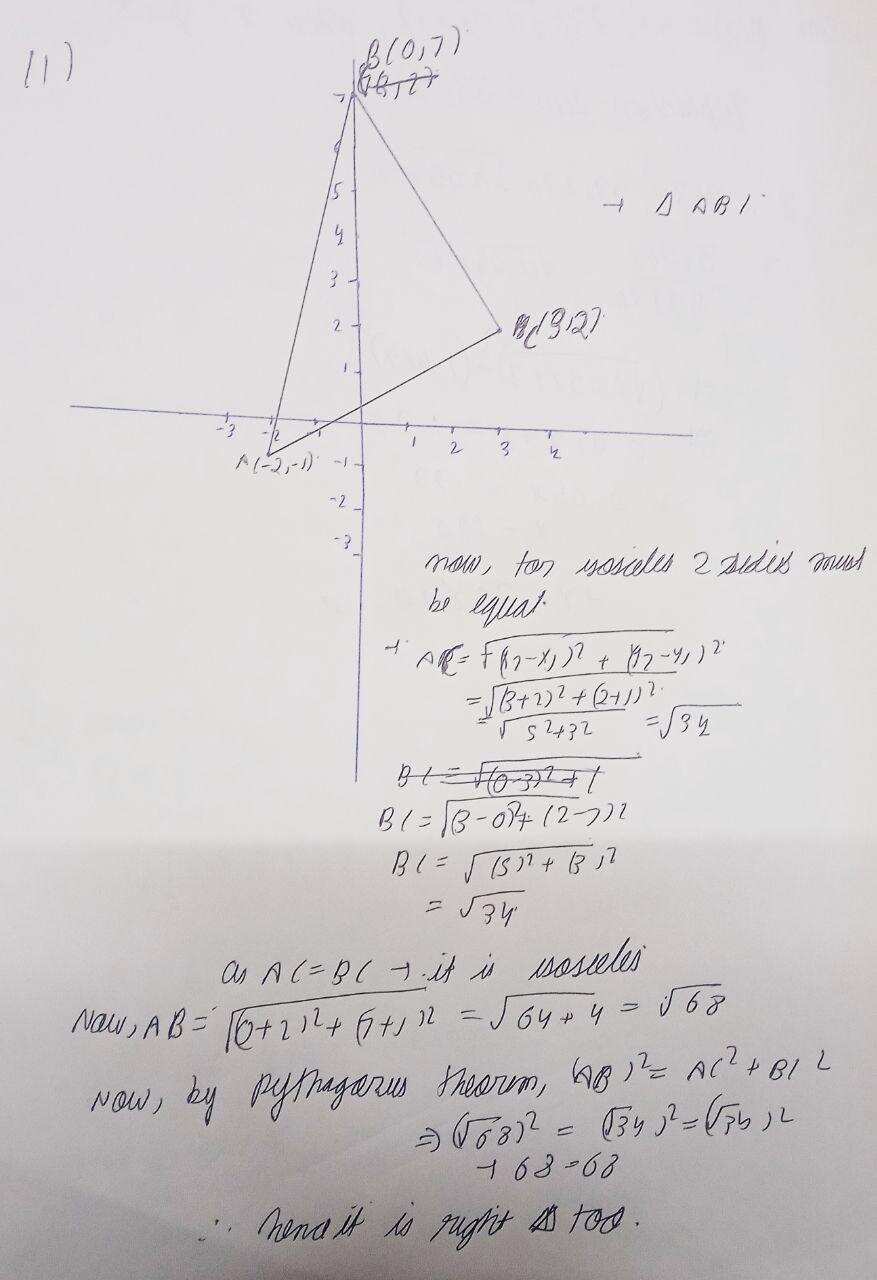 (1)
B(0,7)
7
6
5
→ Δ ABC
4
3
2
C(3,2)
1
-3 -2 -1 1 2 3 4
A(-2,-1)
-1
-2
-3
now, for isosceles 2 sides must
be equal.
→ AC = √(x2-x1)² + (y2-y1)²
= √(3+2)² + (2+1)²
= √5²+3² = √34
BC = √(0-3)² + (
BC = √(3-0)² + (2-7)²
BC = √(5)² + (3)²
= √34
as AC = BC → it is isosceles
Now, AB = √(0+2)² + (7+1)² = √64+4 = √68
Now, by pythagorus theorm, (AB)² = AC² + BC²
⇒ (√68)² = (√34)² = (√34)²
→ 68 = 68
∴ hence it is right Δ too.